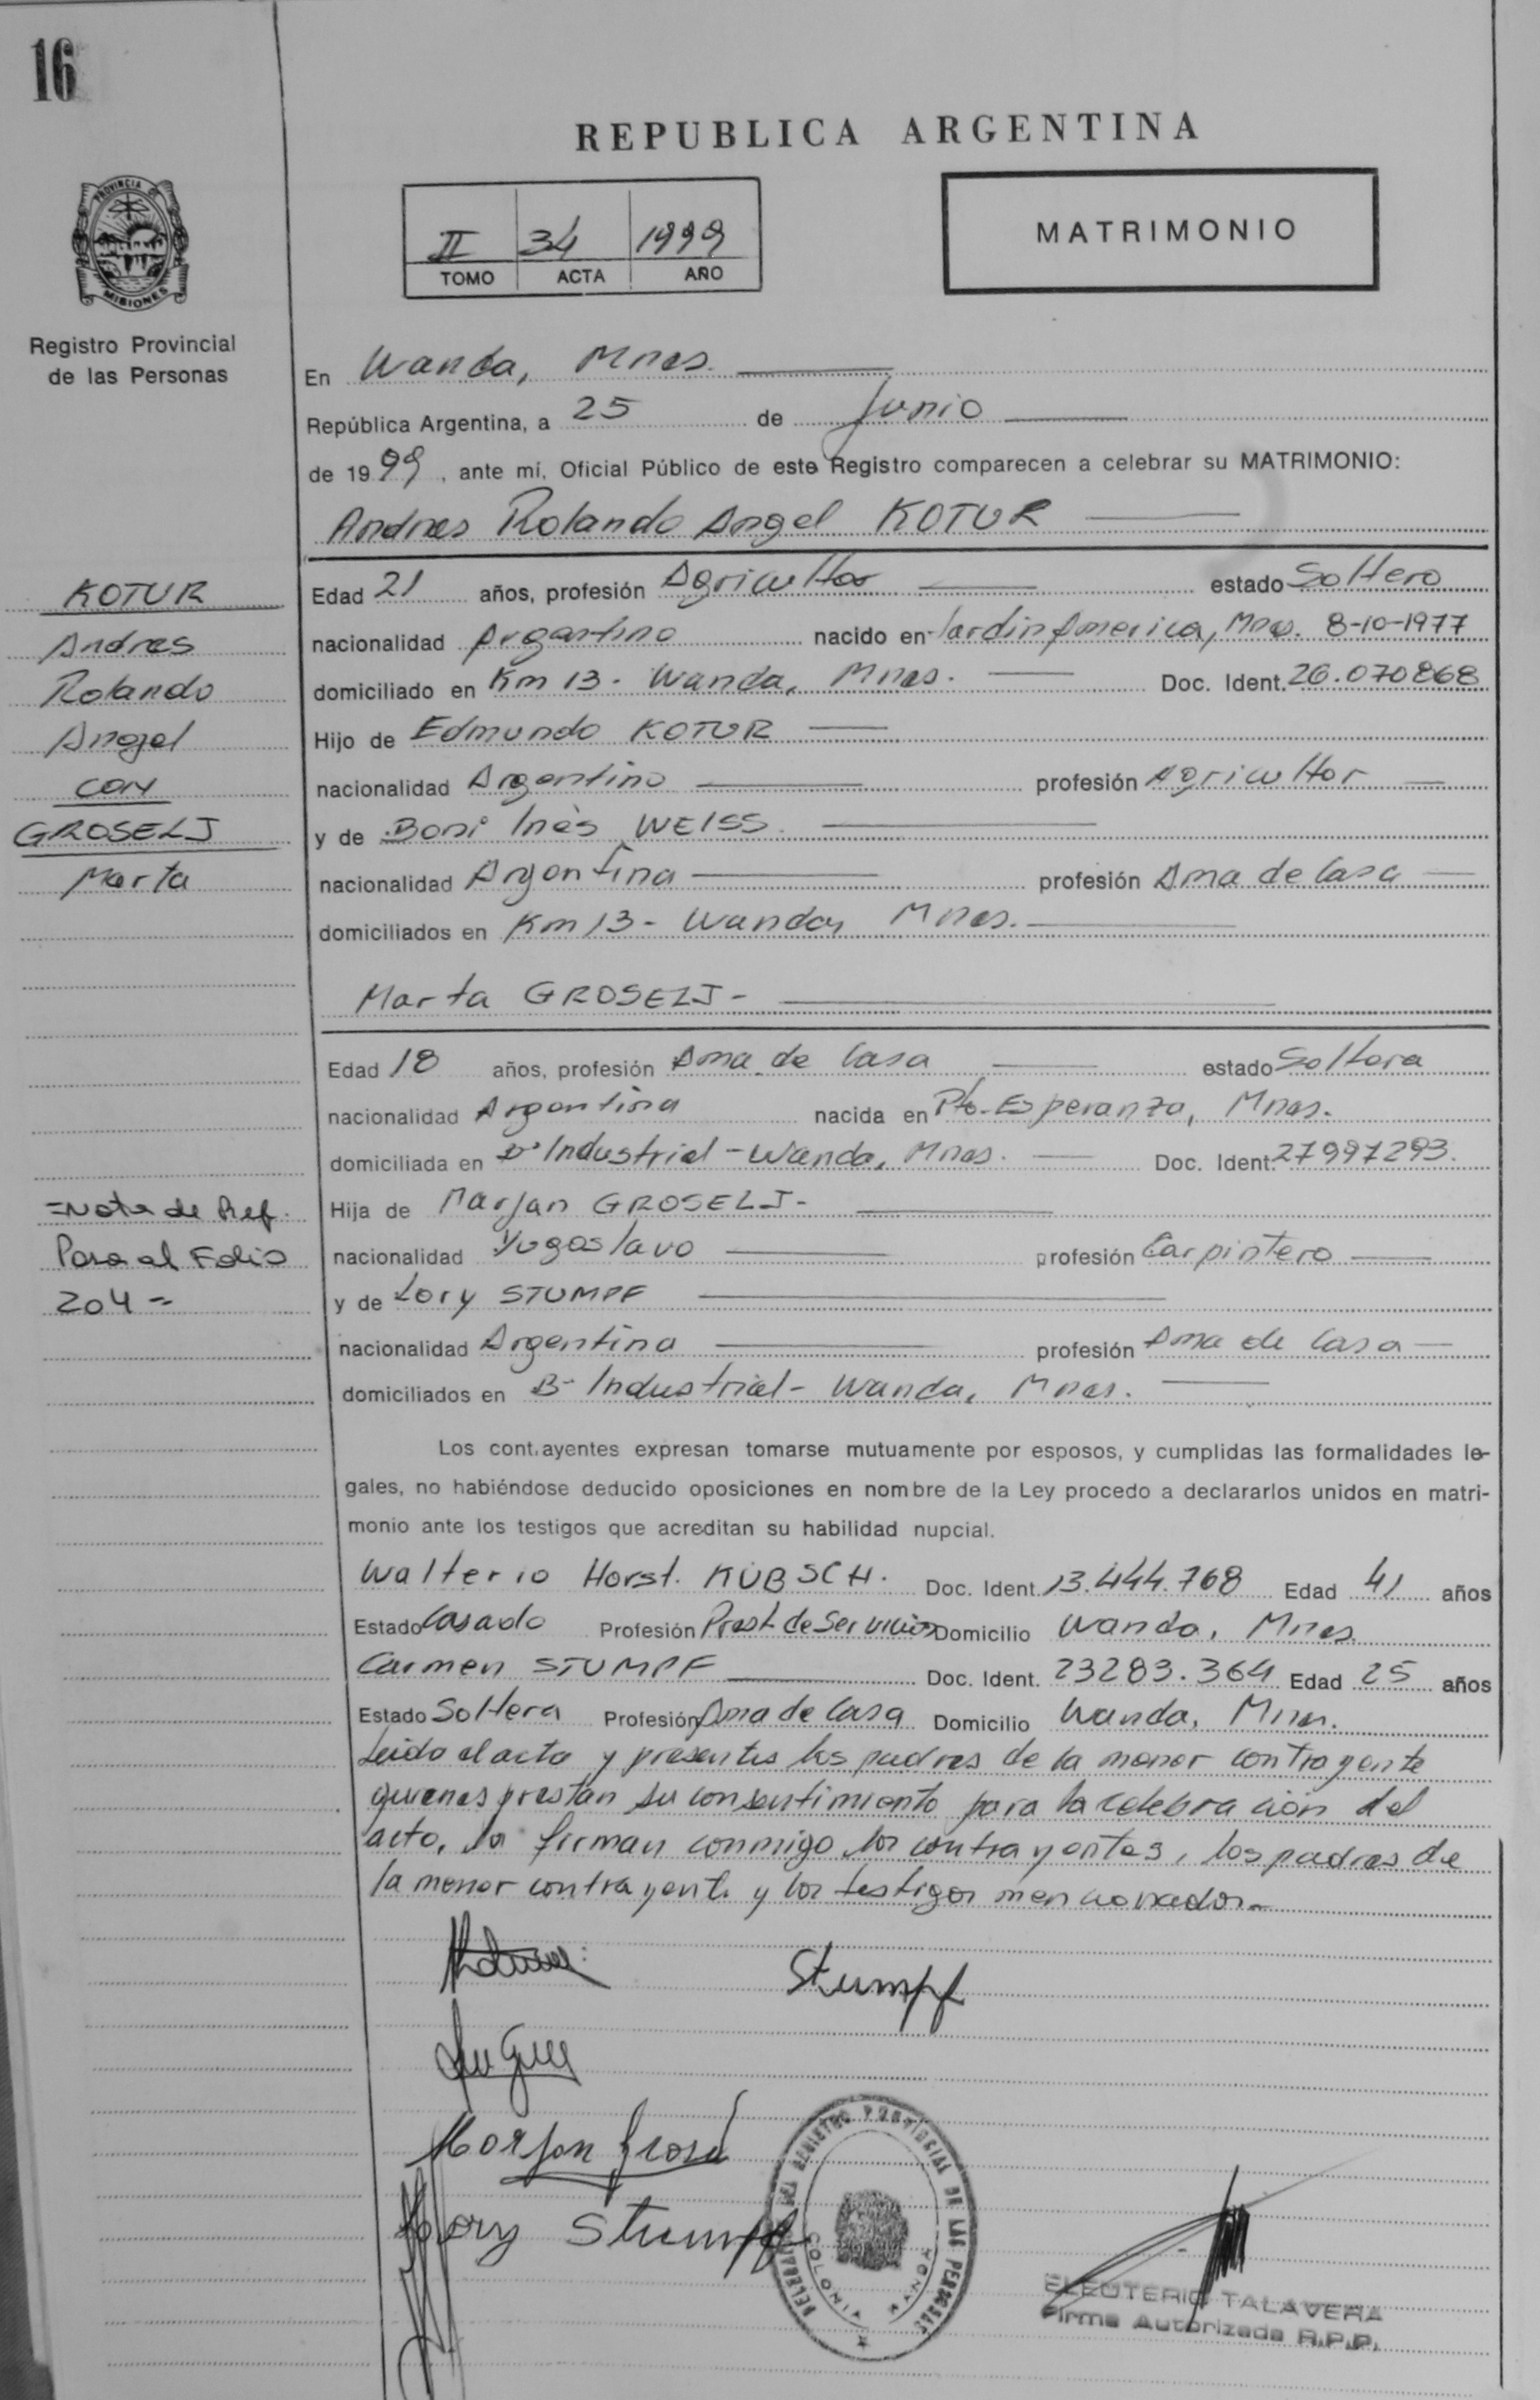 16
REPUBLICA ARGENTINA
PROVINCIA DE
MISIONES
Registro Provincial
de las Personas
II 34 1999
TOMO ACTA AÑO
MATRIMONIO
En Wanda, Mnes.
República Argentina, a 25 de Junio
de 1999, ante mí, Oficial Público de este Registro comparecen a celebrar su MATRIMONIO:
Andres Rolando Angel KOTUR
KOTUR
Andres
Rolando
Angel
CON
GROSELJ
Marta
Edad 21 años, profesión Agricultor estado Soltero
nacionalidad Argentino nacido en Jardin America, Mnes. 8-10-1977
domiciliado en Km 13 - Wanda, Mnes. Doc. Ident. 26.070868
Hijo de Edmundo KOTUR
nacionalidad Argentino profesión Agricultor
y de Boni Inés WEISS
nacionalidad Argentina profesión Ama de Casa
domiciliados en Km 13 - Wanda, Mnes.
Marta GROSELJ -
Edad 18 años, profesión Ama de Casa estado Soltera
nacionalidad Argentina nacida en Pto. Esperanza, Mnes.
domiciliada en B° Industrial - Wanda, Mnes. Doc. Ident. 27997293.
Hija de Marjan GROSELJ -
nacionalidad Yugoslavo profesión Carpintero
y de Lory STUMPF
nacionalidad Argentina profesión Ama de Casa
domiciliados en B- Industrial - Wanda, Mnes.
=Nota de Ref.
Pasa al Folio
204 =
Los contrayentes expresan tomarse mutuamente por esposos, y cumplidas las formalidades le-
gales, no habiéndose deducido oposiciones en nombre de la Ley procedo a declararlos unidos en matri-
monio ante los testigos que acreditan su habilidad nupcial.
Walterio Horst. KÜBSCH. Doc. Ident. 13.444.768 Edad 41 años
Estado Casado Profesión Prest de Servicios Domicilio Wanda, Mnes
Carmen STUMPF Doc. Ident. 23283.364 Edad 25 años
Estado Soltera Profesión Ama de Casa Domicilio Wanda, Mnes.
Leida el acta y presentes los padres de la menor contrayente
quienes prestan su consentimiento para la celebración del
acto, la firman conmigo los contrayentes, los padres de
la menor contrayente y los testigos mencionados.-
Stumpf
Marjan Grosel
Lory Stumpf
DELEGACION DEL REGISTRO PROVINCIAL DE LAS PERSONAS
COLONIA WANDA
ELEUTERIO TALAVERA
Firma Autorizada R.P.P.